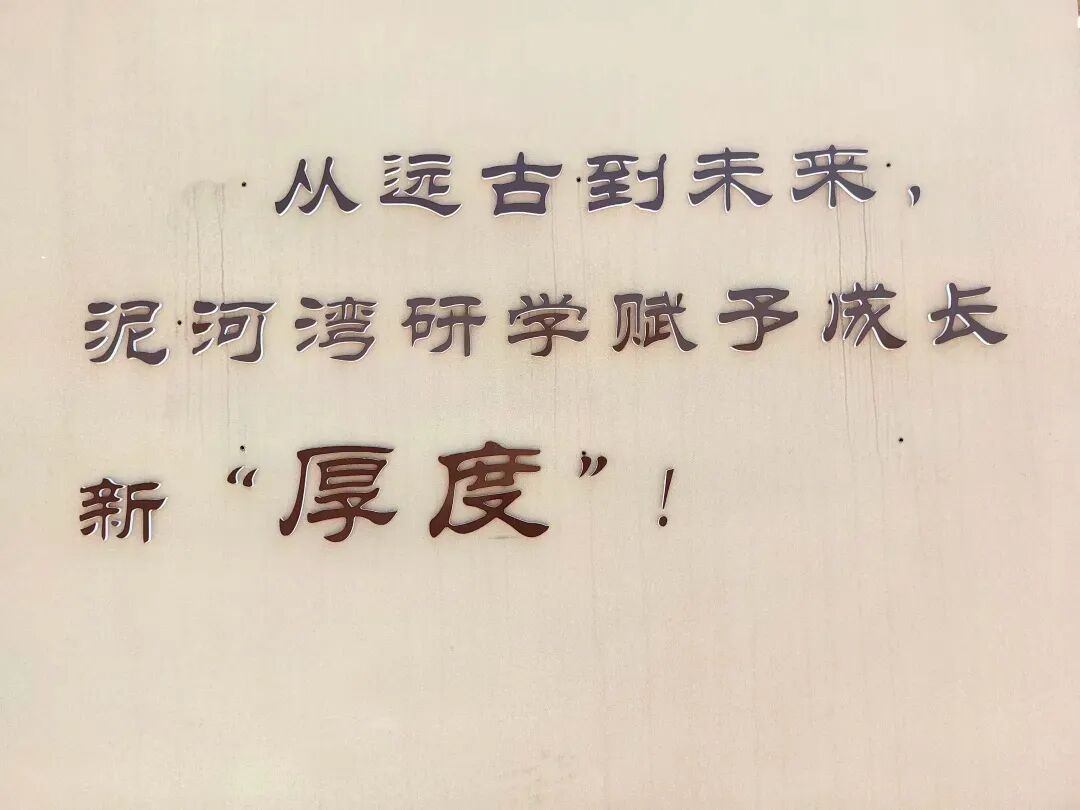 从远古到未来，
泥河湾研学赋予成长
新“厚度”！